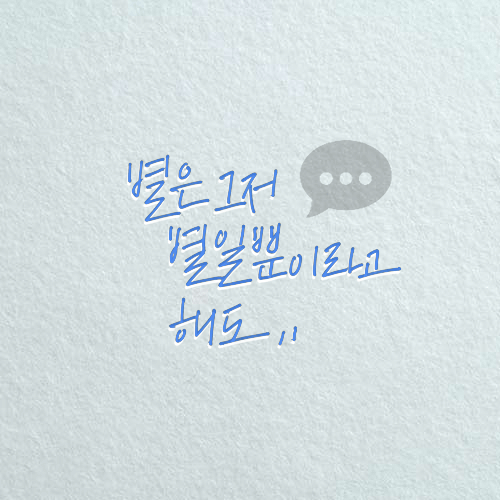 별은 그저
별일뿐이라고
해도,,